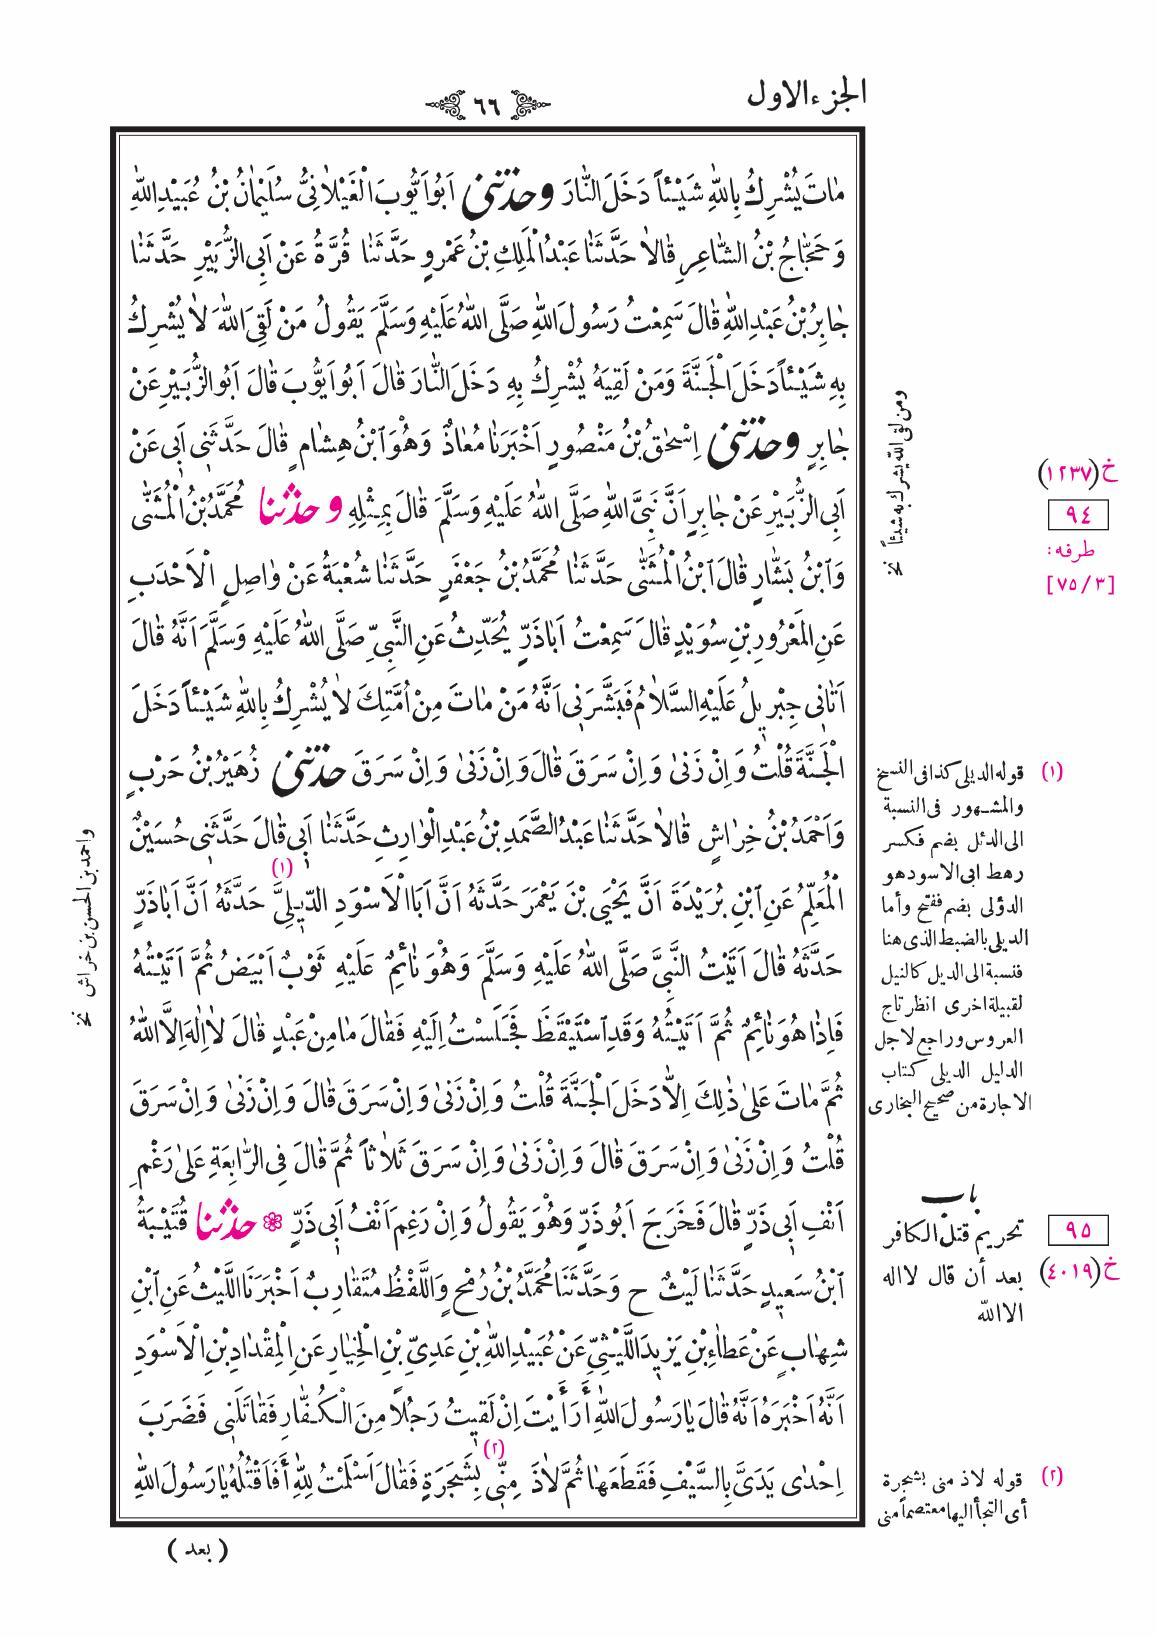 الجزء الاول
٦٦
مٰاتَ يُشْرِكُ بِاللّٰهِ شَيْئاً دَخَلَ النّٰارَ وحدثنى اَبُو اَيُّوبَ الْغَيْلاٰنِىُّ سُلَيْمٰانُ بْنُ عُبَيْدِ اللّٰهِ
وَحَجّٰاجُ بْنُ الشّٰاعِرِ قٰالاٰ حَدَّثَنٰا عَبْدُ الْمَلِكِ بْنُ عَمْرٍو حَدَّثَنٰا قُرَّةُ عَنْ اَبِى الزُّبَيْرِ حَدَّثَنٰا
جٰابِرُ بْنُ عَبْدِ اللّٰهِ قٰالَ سَمِعْتُ رَسُولَ اللّٰهِ صَلَّى اللّٰهُ عَلَيْهِ وَسَلَّمَ يَقُولُ مَنْ لَقِىَ اللّٰهَ لاٰ يُشْرِكُ
بِهِ شَيْئاً دَخَلَ الْجَنَّةَ وَمَنْ لَقِيَهُ يُشْرِكُ بِهِ دَخَلَ النّٰارَ قٰالَ اَبُو اَيُّوبَ قٰالَ اَبُو الزُّبَيْرِ عَنْ
جٰابِرٍ وحدثنى اِسْحٰقُ بْنُ مَنْصُورٍ اَخْبَرَنٰا مُعٰاذٌ وَهُوَ ابْنُ هِشٰامٍ قٰالَ حَدَّثَنِى اَبِى عَنْ
اَبِى الزُّبَيْرِ عَنْ جٰابِرٍ اَنَّ نَبِىَّ اللّٰهِ صَلَّى اللّٰهُ عَلَيْهِ وَسَلَّمَ قٰالَ بِمِثْلِهِ وحدثنا مُحَمَّدُ بْنُ الْمُثَنّٰى
وَابْنُ بَشّٰارٍ قٰالَ ابْنُ الْمُثَنّٰى حَدَّثَنٰا مُحَمَّدُ بْنُ جَعْفَرٍ حَدَّثَنٰا شُعْبَةُ عَنْ وٰاصِلٍ الْاَحْدَبِ
عَنِ الْمَعْرُورِ بْنِ سُوَيْدٍ قٰالَ سَمِعْتُ اَبٰا ذَرٍّ يُحَدِّثُ عَنِ النَّبِىِّ صَلَّى اللّٰهُ عَلَيْهِ وَسَلَّمَ اَنَّهُ قٰالَ
اَتٰانِى جِبْرِيلُ عَلَيْهِ السَّلاٰمُ فَبَشَّرَنِى اَنَّهُ مَنْ مٰاتَ مِنْ اُمَّتِكَ لاٰ يُشْرِكُ بِاللّٰهِ شَيْئاً دَخَلَ
الْجَنَّةَ قُلْتُ وَاِنْ زَنٰى وَاِنْ سَرَقَ قٰالَ وَاِنْ زَنٰى وَاِنْ سَرَقَ حدثنى زُهَيْرُ بْنُ حَرْبٍ
وَاَحْمَدُ بْنُ خِرٰاشٍ قٰالاٰ حَدَّثَنٰا عَبْدُ الصَّمَدِ بْنُ عَبْدِ الْوٰارِثِ حَدَّثَنٰا اَبِى قٰالَ حَدَّثَنِى حُسَيْنٌ
الْمُعَلِّمُ عَنِ ابْنِ بُرَيْدَةَ اَنَّ يَحْيَى بْنَ يَعْمَرَ حَدَّثَهُ اَنَّ اَبَا الْاَسْوَدِ الدِّيلِىَّ (١) حَدَّثَهُ اَنَّ اَبٰا ذَرٍّ
حَدَّثَهُ قٰالَ اَتَيْتُ النَّبِىَّ صَلَّى اللّٰهُ عَلَيْهِ وَسَلَّمَ وَهُوَ نٰائِمٌ عَلَيْهِ ثَوْبٌ اَبْيَضُ ثُمَّ اَتَيْتُهُ
فَاِذٰا هُوَ نٰائِمٌ ثُمَّ اَتَيْتُهُ وَقَدِ اسْتَيْقَظَ فَجَلَسْتُ اِلَيْهِ فَقٰالَ مٰا مِنْ عَبْدٍ قٰالَ لاٰ اِلٰهَ اِلاَّ اللّٰهُ
ثُمَّ مٰاتَ عَلىٰ ذٰلِكَ اِلاّٰ دَخَلَ الْجَنَّةَ قُلْتُ وَاِنْ زَنٰى وَاِنْ سَرَقَ قٰالَ وَاِنْ زَنٰى وَاِنْ سَرَقَ
قُلْتُ وَاِنْ زَنٰى وَاِنْ سَرَقَ قٰالَ وَاِنْ زَنٰى وَاِنْ سَرَقَ ثَلاٰثاً ثُمَّ قٰالَ فِى الرّٰابِعَةِ عَلىٰ رَغْمِ
اَنْفِ اَبِى ذَرٍّ قٰالَ فَخَرَجَ اَبُو ذَرٍّ وَهُوَ يَقُولُ وَاِنْ رَغِمَ اَنْفُ اَبِى ذَرٍّ ❁ حدثنا قُتَيْبَةُ
ابْنُ سَعِيدٍ حَدَّثَنٰا لَيْثٌ ح وَحَدَّثَنٰا مُحَمَّدُ بْنُ رُمْحٍ وَاللَّفْظُ مُتَقٰارِبٌ اَخْبَرَنَا اللَّيْثُ عَنِ ابْنِ
شِهٰابٍ عَنْ عَطٰاءِ بْنِ يَزِيدَ اللَّيْثِىِّ عَنْ عُبَيْدِ اللّٰهِ بْنِ عَدِىِّ بْنِ الْخِيٰارِ عَنِ الْمِقْدٰادِ بْنِ الْاَسْوَدِ
اَنَّهُ اَخْبَرَهُ اَنَّهُ قٰالَ يٰا رَسُولَ اللّٰهِ أَرَأَيْتَ اِنْ لَقِيتُ رَجُلاً مِنَ الْكُفّٰارِ فَقٰاتَلَنِى فَضَرَبَ
اِحْدٰى يَدَىَّ بِالسَّيْفِ فَقَطَعَهٰا ثُمَّ لاٰذَ مِنِّى (٢) بِشَجَرَةٍ فَقٰالَ اَسْلَمْتُ لِلّٰهِ أَفَاَقْتُلُهُ يٰا رَسُولَ اللّٰهِ
( بعد )
ومن لقى الله يشرك به شيئاً نخ
خ (١٢٣٧)
٩٤
طرفه :
[٧٥/٣]
(١) قوله الديلى كذا فى النسخ
والمشهور فى النسبة
الى الدئل بضم فكسر
رهط ابى الاسود هو
الدؤلى بضم ففتح وأما
الديلى بالضبط الذى هنا
فنسبة الى الديل كالنيل
لقبيلة اخرى انظر تاج
العروس وراجع لاجل
الدليل الديلى كتاب
الاجارة من صحيح البخارى
واحمد بن الحسن بن خراش نخ
باب
تحريم قتل الكافر
بعد أن قال لا اله
الا الله
٩٥
خ (٤٠١٩)
(٢) قوله لاذ منى بشجرة
أى التجأ اليها معتصماً منى